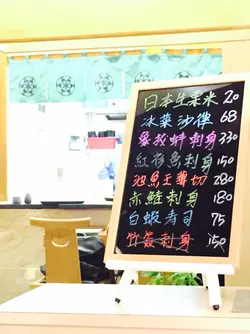 日本生果米 20
冰菜沙 68
象拔蚌刺身 330
紅衫魚刺身 150
池魚王薄切 280
赤鯥刺身 180
白蝦寿司 75
竹刺身 150